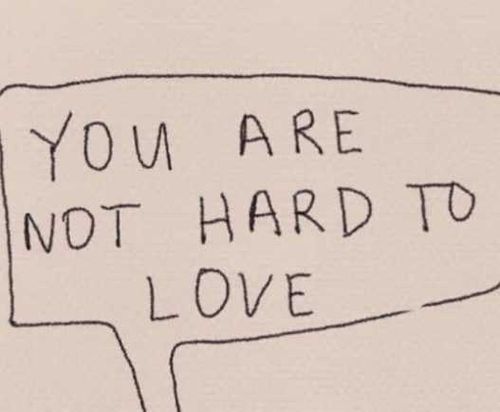 YOU ARE
NOT HARD TO
LOVE